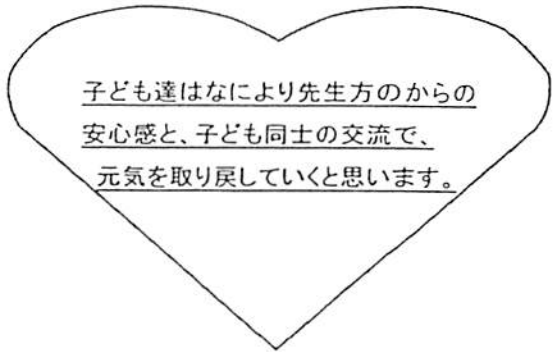 子ども達はなにより先生方のからの
安心感と、子ども同士の交流で、
元気を取り戻していくと思います。